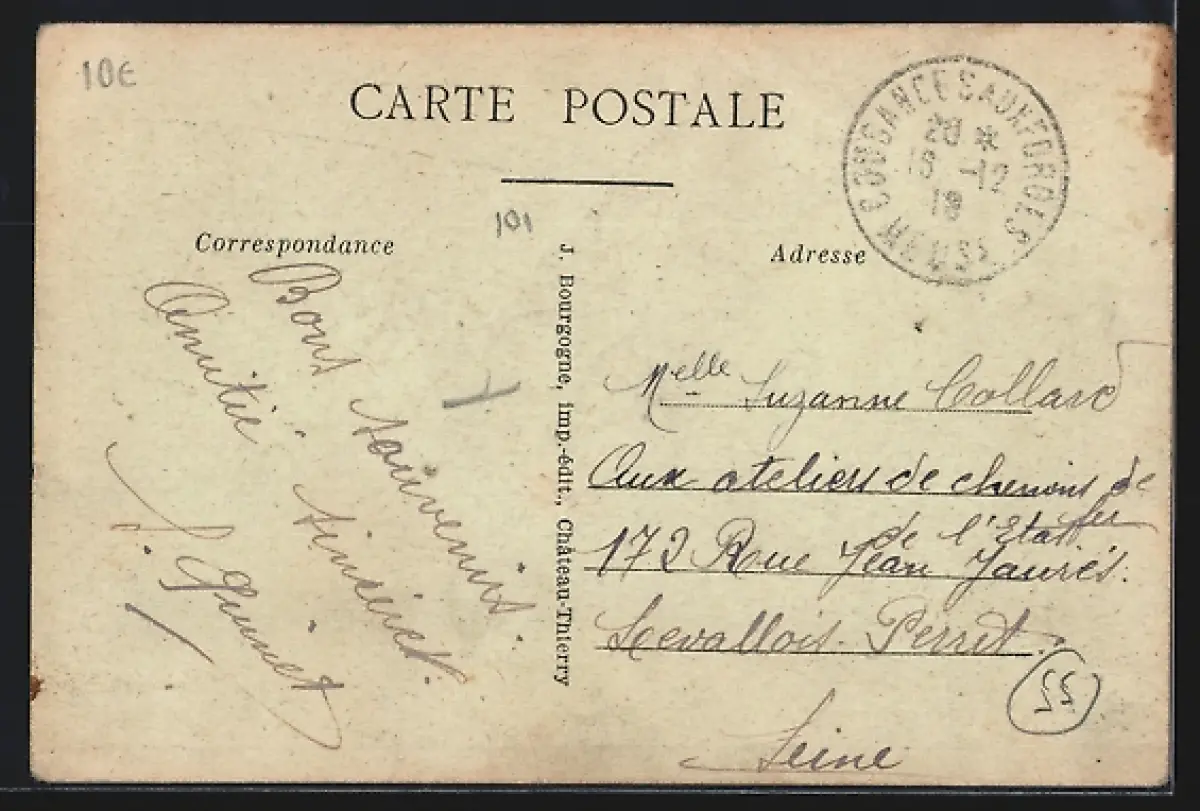 10€
CARTE POSTALE
COUSANCES AUX FORGES
20 *
18 -12
19
MEUSE
101
Correspondance
Adresse
J. Bourgogne, imp.-édit., Château-Thierry
Bons souvenirs.
Amitié sincères.
Melle Suzanne Collard
Aux ateliers de chemins de
fer
de l'Etat
172 Rue Jean Jaurès.
Levallois-Perret
Seine
55